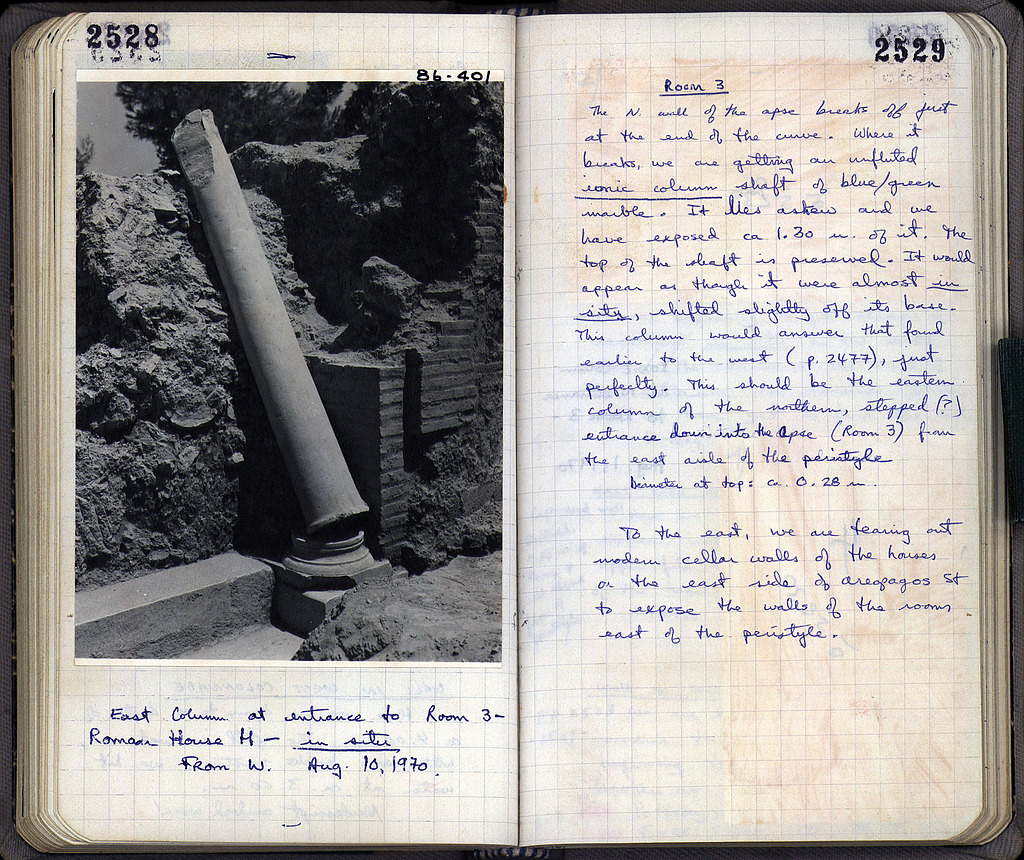 2528
86-401
East Column at entrance to Room 3-
Roman House H — in situ
From W. Aug. 10, 1970.
2529
Room 3
The N. wall of the apse breaks off just
at the end of the curve. Where it
breaks, we are getting an unfluted
ionic column shaft of blue/green
marble. It lies askew and we
have exposed ca 1.30 m. of it. The
top of the shaft is preserved. It would
appear as though it were almost in
situ, shifted slightly off its base.
This column would answer that found
earlier to the west (p. 2477), just
perfectly. This should be the eastern
column of the northern, stepped (?)
entrance down into the apse (Room 3) from
the east aisle of the peristyle
Diameter at top: ca. 0.28 m.
To the east, we are tearing out
modern cellar walls of the houses
on the east side of areopagos St
to expose the walls of the rooms
east of the peristyle.